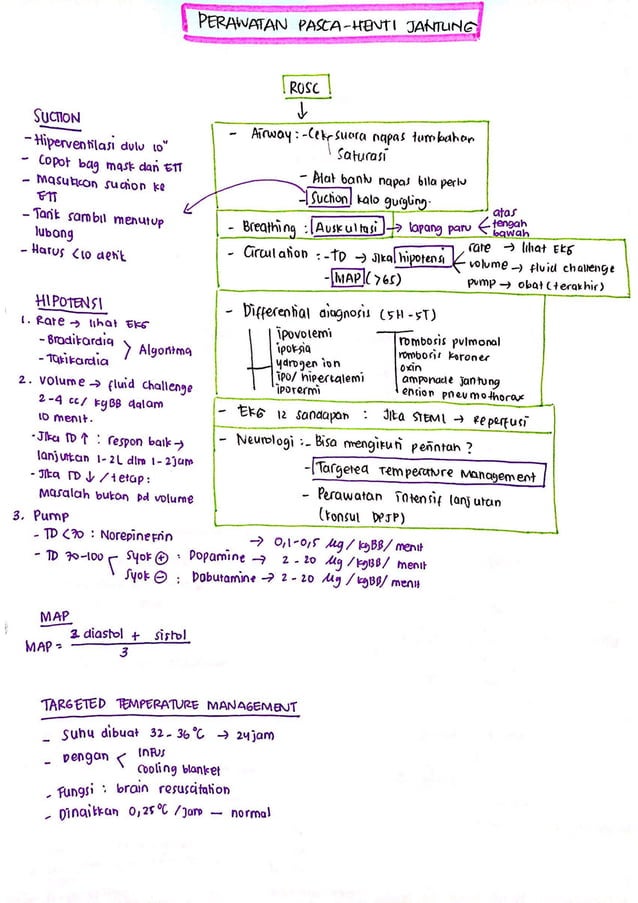 PERAWATAN PASCA-HENTI JANTUNG
ROSC
- Airway : - Cek suara napas tambahan
saturasi
- Alat bantu napas bila perlu
- Suction kalo gurgling.
- Breathing : Auskultasi → lapang paru < atas
tengah
bawah
- Circulation : - TD → Jika hipotensi < rate → lihat EKG
volume → fluid challenge
pump → obat (terakhir)
- MAP (>65)
- Differential diagnosis (5H-5T)
H ipovolemi
ipoksia
ydrogen ion
ipo/hiperkalemi
ipotermi
T rombosis pulmonal
rombosis koroner
oxin
amponade jantung
ension pneumothorax
- EKG 12 sandapan : Jika STEMI → Reperfusi
- Neurologi : - Bisa mengikuti perintah ?
- Targeted Temperature Management
- Perawatan intensif lanjutan
(konsul DPJP)
SUCTION
- Hiperventilasi dulu 10"
- Copot bag mask dari ETT
- Masukkan suction ke
ETT
- Tarik sambil menutup
lubang
- Harus <10 detik
HIPOTENSI
1. Rate → lihat EKG
- Bradikardia
- Takikardia > Algoritma
2. Volume → fluid challenge
2-4 cc/kgBB dalam
10 menit.
- Jika TD ↑ : respon baik →
lanjutkan 1-2L dlm 1-2jam
- Jika TD ↓ / tetap :
Masalah bukan pd volume
3. Pump
- TD <70 : Norepinefrin → 0,1-0,5 µg/kgBB/menit
- TD 70-100 Syok ⊕ : Dopamine → 2-20 µg/kgBB/menit
Syok ⊖ : Dobutamine → 2-20 µg/kgBB/menit
MAP
MAP = 2 diastol + sistol
3
TARGETED TEMPERATURE MANAGEMENT
- Suhu dibuat 32-36°C → 24jam
- Dengan < infus
cooling blanket
- Fungsi : brain resuscitation
- Dinaikkan 0,25°C/jam — normal